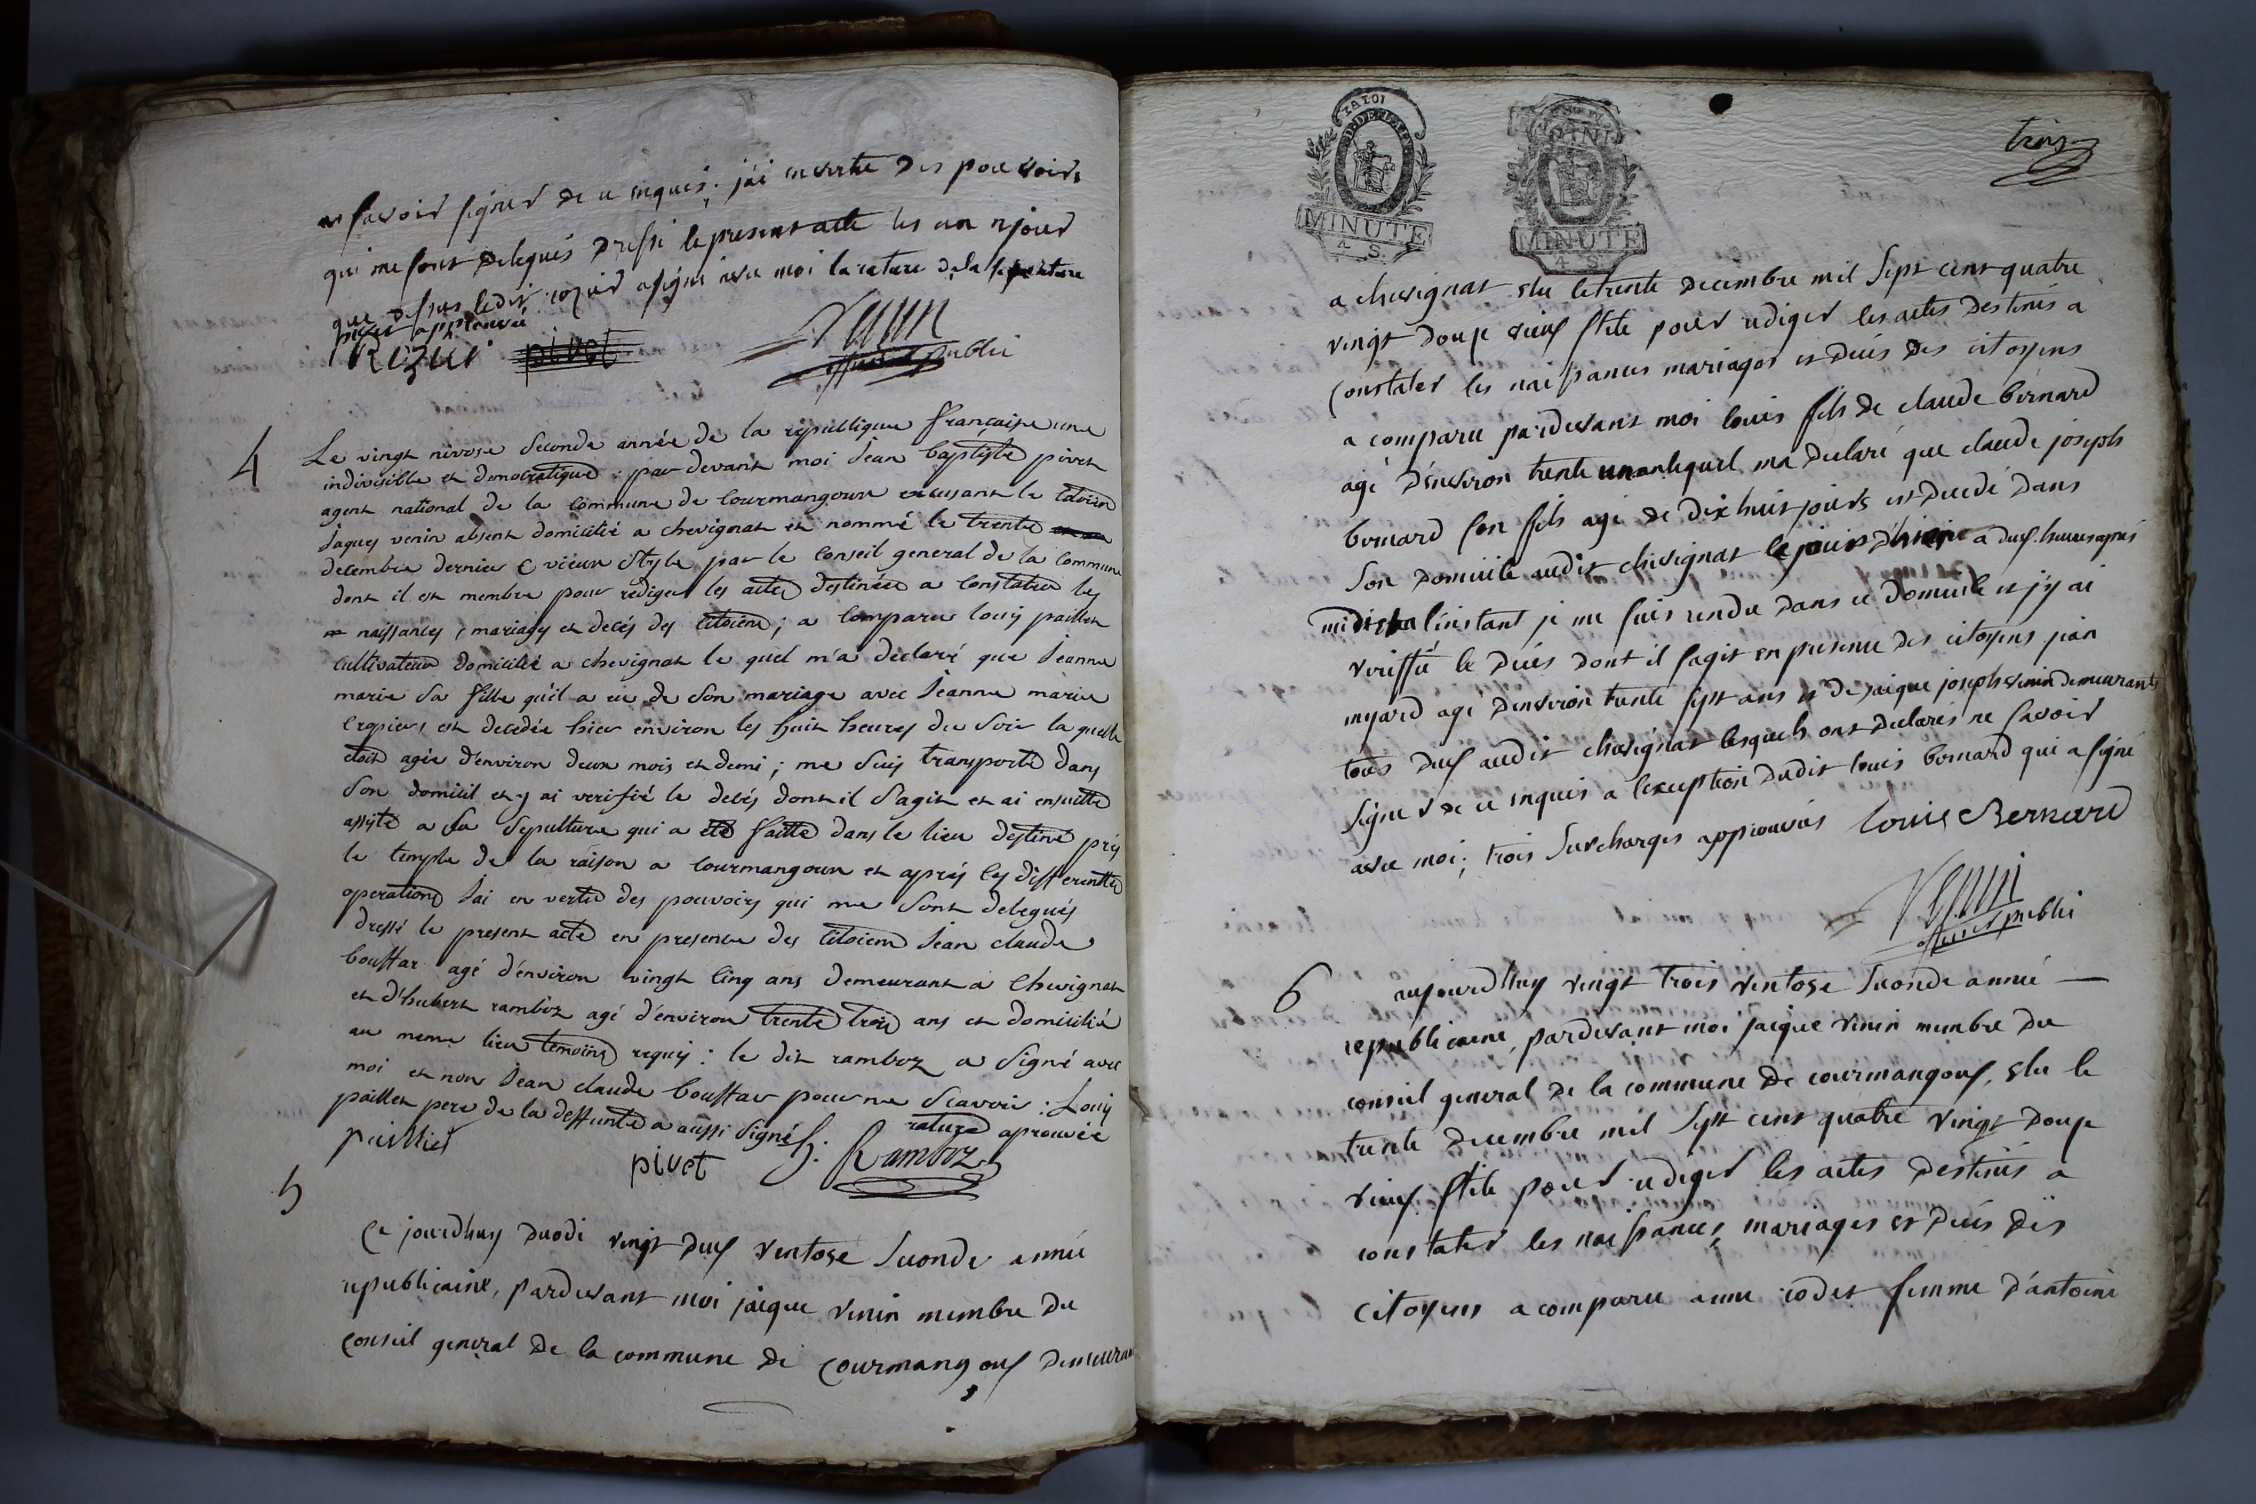 ne savoir signer de ce enquis; j'ai en vertu des pouvoirs
qui me sont delegués dressé le present acte les an et jour
que dessus ledit rozier a signé avec moi la rature de la signature
pivet approuvée
Rozier pivet Venin
officier public
4
Le vingt nivose seconde année de la république française une
indivisible et démocratique : par devant moi Jean baptiste pivet
agent national de la commune de Courmangoux excusant le citoien
Jaques venin absent domicilié a chevignat et nommé le trente
decembre dernier vieux style par le conseil general de la commune
dont il est membre pour rediger les actes destinées a constater les
naissances, mariages et decés des citoiens; a comparu louis paillet
cultivateur domicilié a chevignat le quel m'a declaré que Jeanne
marie sa fille qu'il a eu de son mariage avec Jeanne marie
est decedée hier environ les huit heures du soir la quelle
etoit agée d'environ deux mois et demi; me suis transporté dans
son domicil et y ai verifié le decés dont il s'agit et ai ensuitte
assisté a sa sepulture qui a été faitte dans le lieu destiné prés
le temple de la raison a Courmangoux et aprés les differenttes
operations J'ai en vertu des pouvoirs qui me sont delegués
dressé le present acte en presence des citoiens Jean claude
bouffar agé d'environ vingt cinq ans demeurant a Chevignat
et d'hubert ramboz agé d'environ trente trois ans et domicilié
au meme lieu temoins requis : le dit ramboz a signé avec
moi et non Jean claude bouffar pour ne sçavoir : Louis
paillet pere de la deffunte a aussi signé rature aprouvée
paillet pivet h. Ramboz
5
Ce jourdhuy duodi vingt deux ventose seconde année
republicaine, pardevant moi jaique venin membre du
conseil general de la commune de courmangoux demeurant
LA LOI
MINUTE
4 S.
MINUTE
4 S.
trois
a chevignat elu le trente decembre mil sept cent quatre
vingt douze vieux stile pour rediger les actes destinés a
constater les naissances mariages et deces des citoyens
a comparu pardevant moi louis fils de claude bernard
agé d'environ trente un an lequel ma declaré que claude joseph
bernard son fils agé de dix huit jours est decedé dans
son domicile audit chevignat le jour d'hier a deux heures aprés
midi et a l'instant je me suis rendu dans ce domicile et j'y ai
veriffié le decés dont il sagit en presence des citoyens jean
myard agé denviron trente sept ans et de jaique joseph venin demeurants
tous deux audit chevignat lesquels ont declarés ne savoir
signer de ce enquis a lexception dudit louis bernard qui a signé
avec moi; trois surcharges approuvées Louis Bernard
Venin
officier public
6
aujourdhuy vingt trois ventose seconde année
republicaine, pardevant moi jaique venin membre du
conseil general de la commune de courmangoux, elu le
trente decembre mil sept cent quatre vingt douze
vieux stile pour rediger les actes destinés a
constater les naissances, mariages et decés des
citoyens a comparu anne rodet femme d'antoine